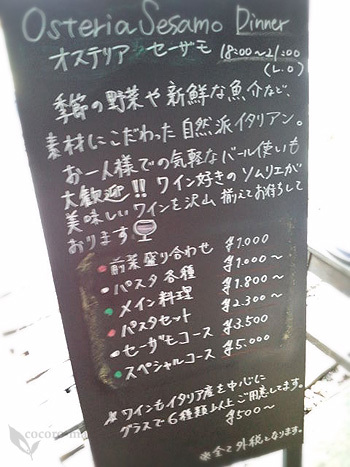 Osteria Sesamo Dinner
オステリア・セーザモ 18:00〜21:00
(L.O)
季節の野菜や新鮮な魚介など、
素材にこだわった自然派イタリアン。
お一人様での気軽なバール使いも
大歓迎!! ワイン好きのソムリエが
美味しいワインを沢山揃えてお待ちして
おります
・前菜盛り合わせ ¥1.000
・パスタ各種 ¥1.000〜
・メイン料理 ¥1.800〜
・パスタセット ¥2.300〜
・セーザモコース ¥3.500
・スペシャルコース ¥5.000
※ワインもイタリア産を中心に
グラスで6種類以上ご用意してます。
¥500〜
※全て外税となります。